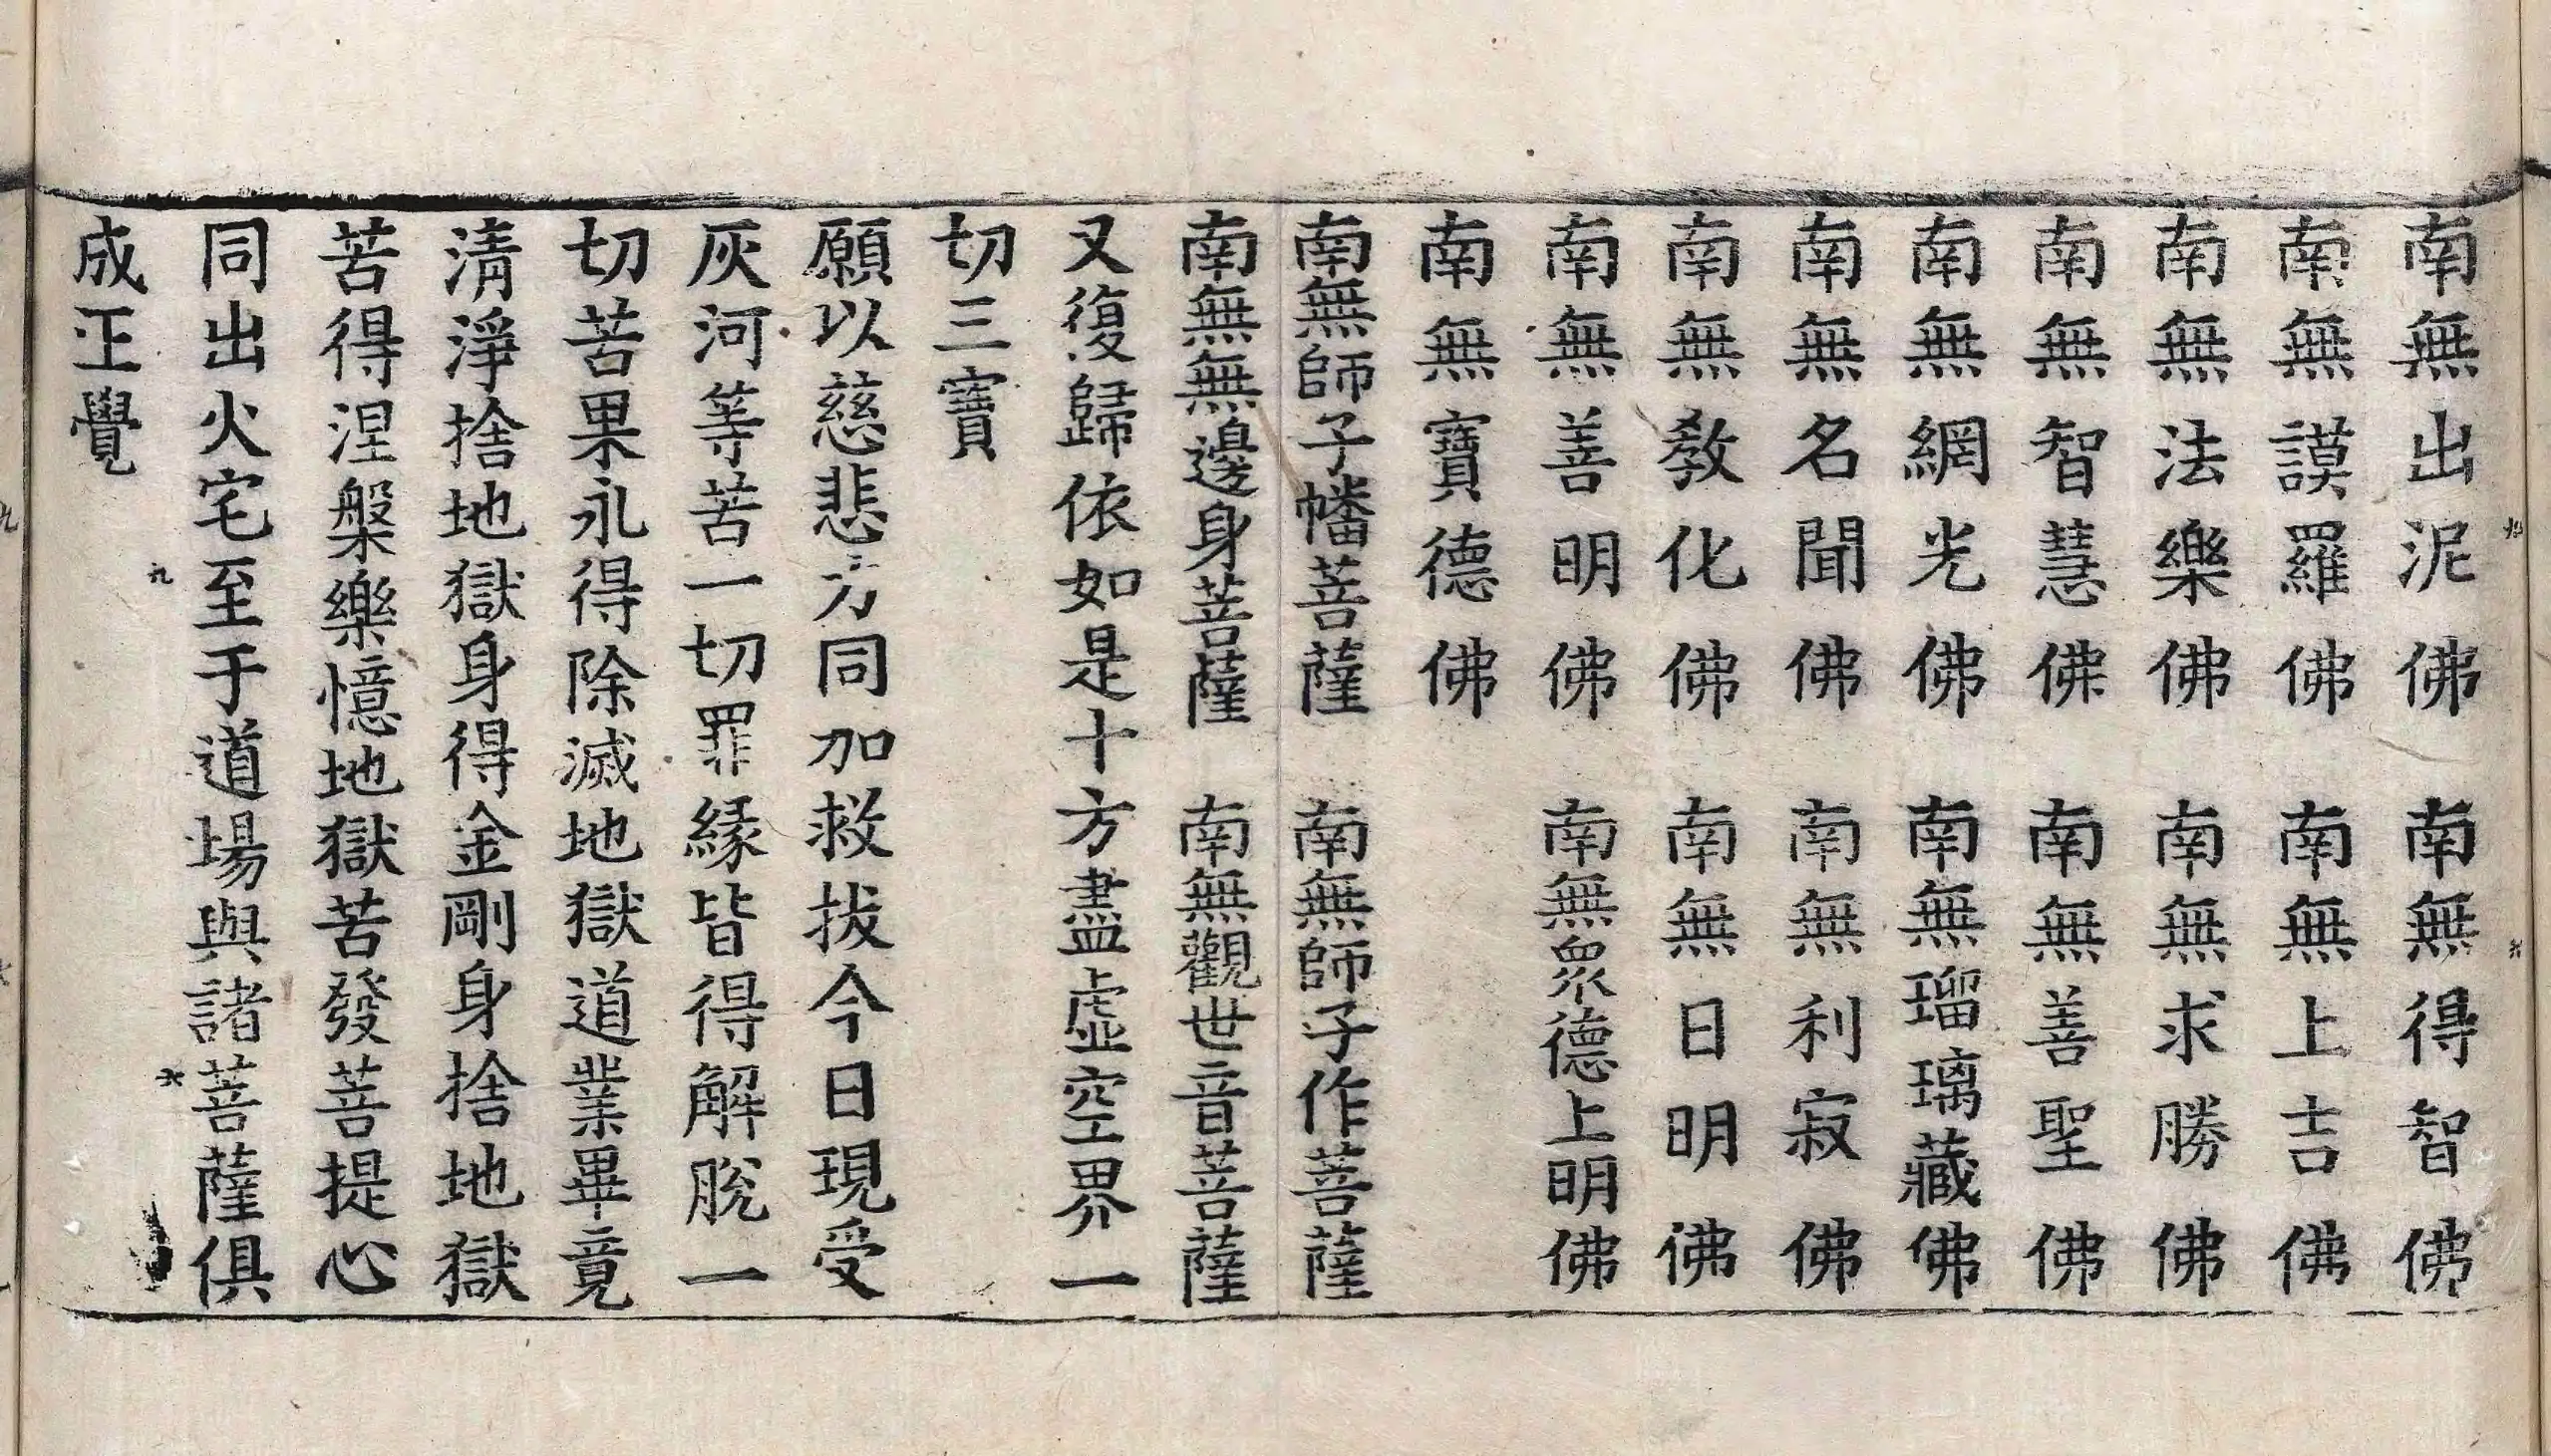 南無出泥佛　南無得智佛
南無謨羅佛　南無上吉佛
南無法樂佛　南無求勝佛
南無智慧佛　南無善聖佛
南無網光佛　南無瑠璃藏佛
南無名聞佛　南無利寂佛
南無教化佛　南無日明佛
南無善明佛　南無眾德上明佛
南無寶德佛
南無師子幡菩薩　南無師子作菩薩
南無無邊身菩薩　南無觀世音菩薩
又復歸依如是十方盡虛空界一
切三寶
願以慈悲力同加救拔今日現受
灰河等苦一切罪緣皆得解脫一
切苦果永得除滅地獄道業畢竟
清淨捨地獄身得金剛身捨地獄
苦得涅槃樂憶地獄苦發菩提心
同出火宅至于道場與諸菩薩俱
成正覺